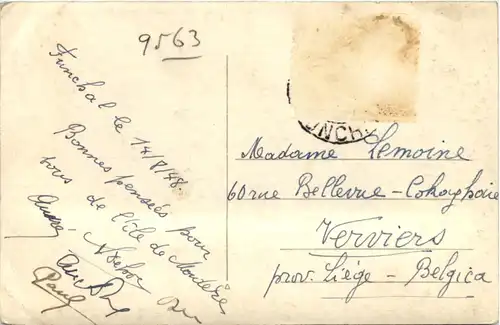 9563
Funchal le 14/8/48.
Bonnes pensées pour
vous de l'île de Madère
André
Paul
UNCH
Madame Lemoine
60 rue Bellevue-Cokaghaie
Verviers
prov. Liége - Belgica